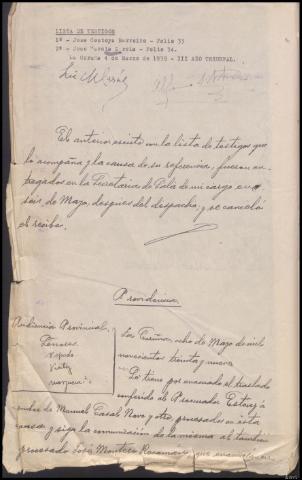 LISTA DE TESTIGOS
1º - Jose Montoya Barreiro - Folio 33
2º - Jose García - Folio 34.
La Coruña 4 de Marzo de 1939 - III AÑO TRIUNFAL.
El anterior escrito con la lista de testigos que
lo acompaña y la causa de su referencia, fueron en-
tregados en la Secretaría de Sala de mi cargo en
seis de Mayo, despues del despacho; y se canceló
el recibo.
Providencia
Audiencia Provincial
Señores
La Coruña, ocho de Mayo de mil
novecientos treinta y nueve
Se tiene por evacuado el traslado
conferido al Procurador Estevez á
nombre de Manuel Casal Novo y otro procesados en esta
causa y siga la comunicación de la misma al tambien
procesado José Montero